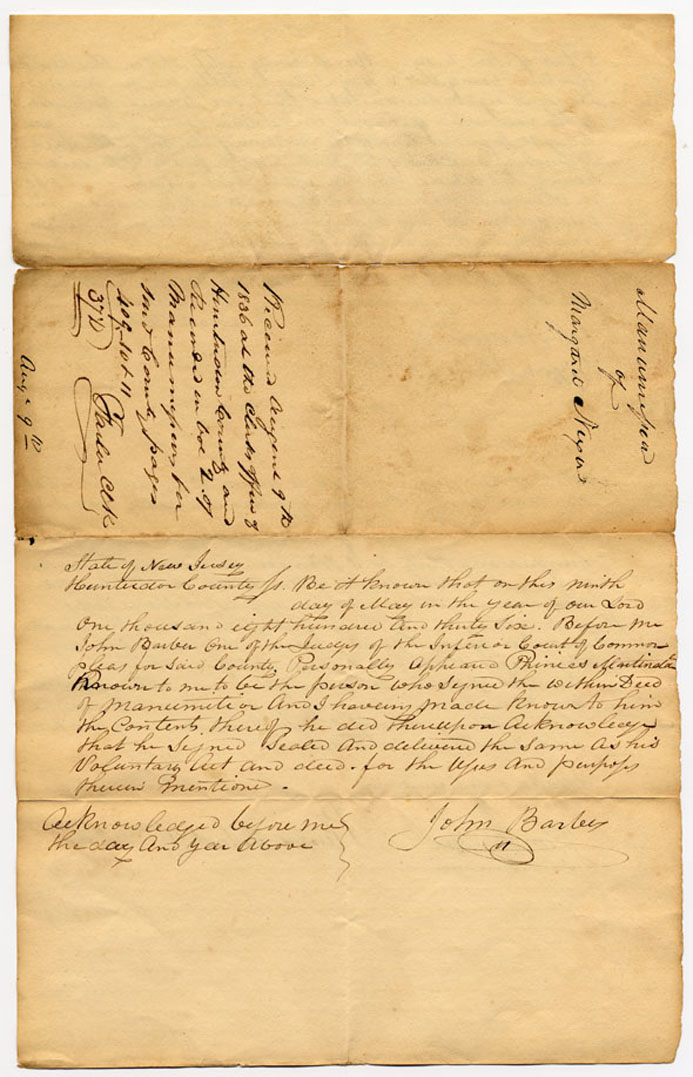 Manumission
of
Margaret
Received August 9th
1836 at the Clerks office of
Hunterdon County and
Recorded in Vol 2 of
Manumissions for
said County pages
409, 10 & 11
Clk
Augt 9th
State of New Jersey
Hunterdon County Ss. Be it known that on this ninth
day of May in the year of our Lord
One thousand eight hundred And thirty Six. Before me
John Barber One of the Judges of the Inferior Court of Common
pleas for said County. Personally Appeard
Known to me to be the person who signed the within Deed
of Manumition And I haveing made Known to him
the Contents thereof he did thereupon Acknowledge
that he Signed Sealed And delivered the same As his
Voluntary Act and deed. for the Uses And purposes
therein Mentioned.
Acknowledged before me
the day And year Above
John Barber